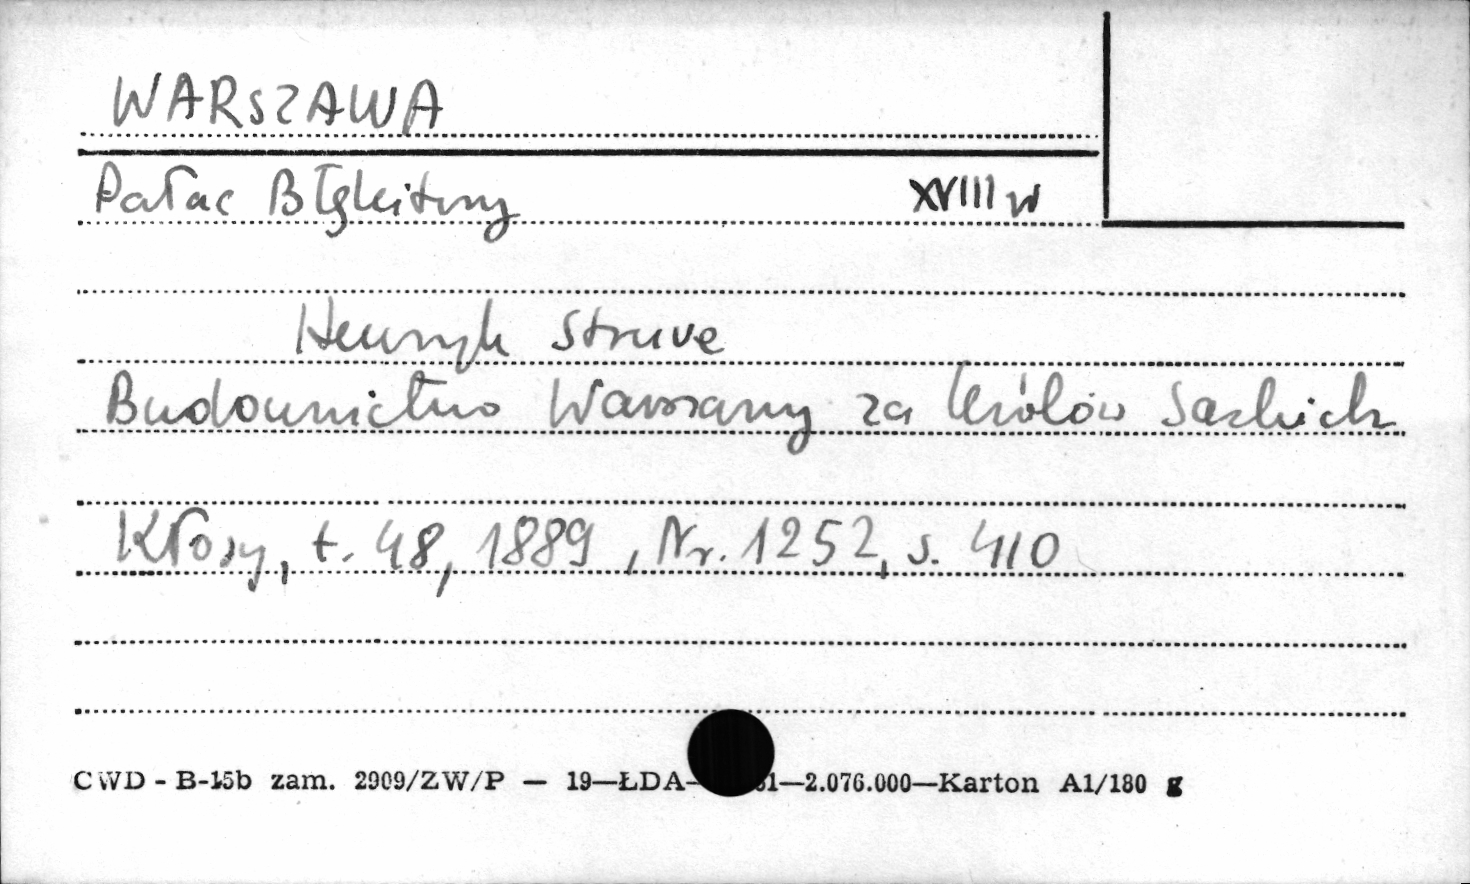 WARSZAWA
Pałac Błękitny XVIII w
Henryk Struve
Budownictwo Warszawy za królów Saskich
Kłosy, t. 48, 1889, Nr. 1252, s. 410
CWD - B-15b zam. 2909/ZW/P — 19—ŁDA- 1—2.076.000—Karton A1/180 g